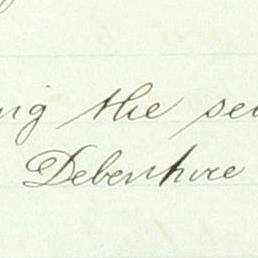 ng the se
Debenhire